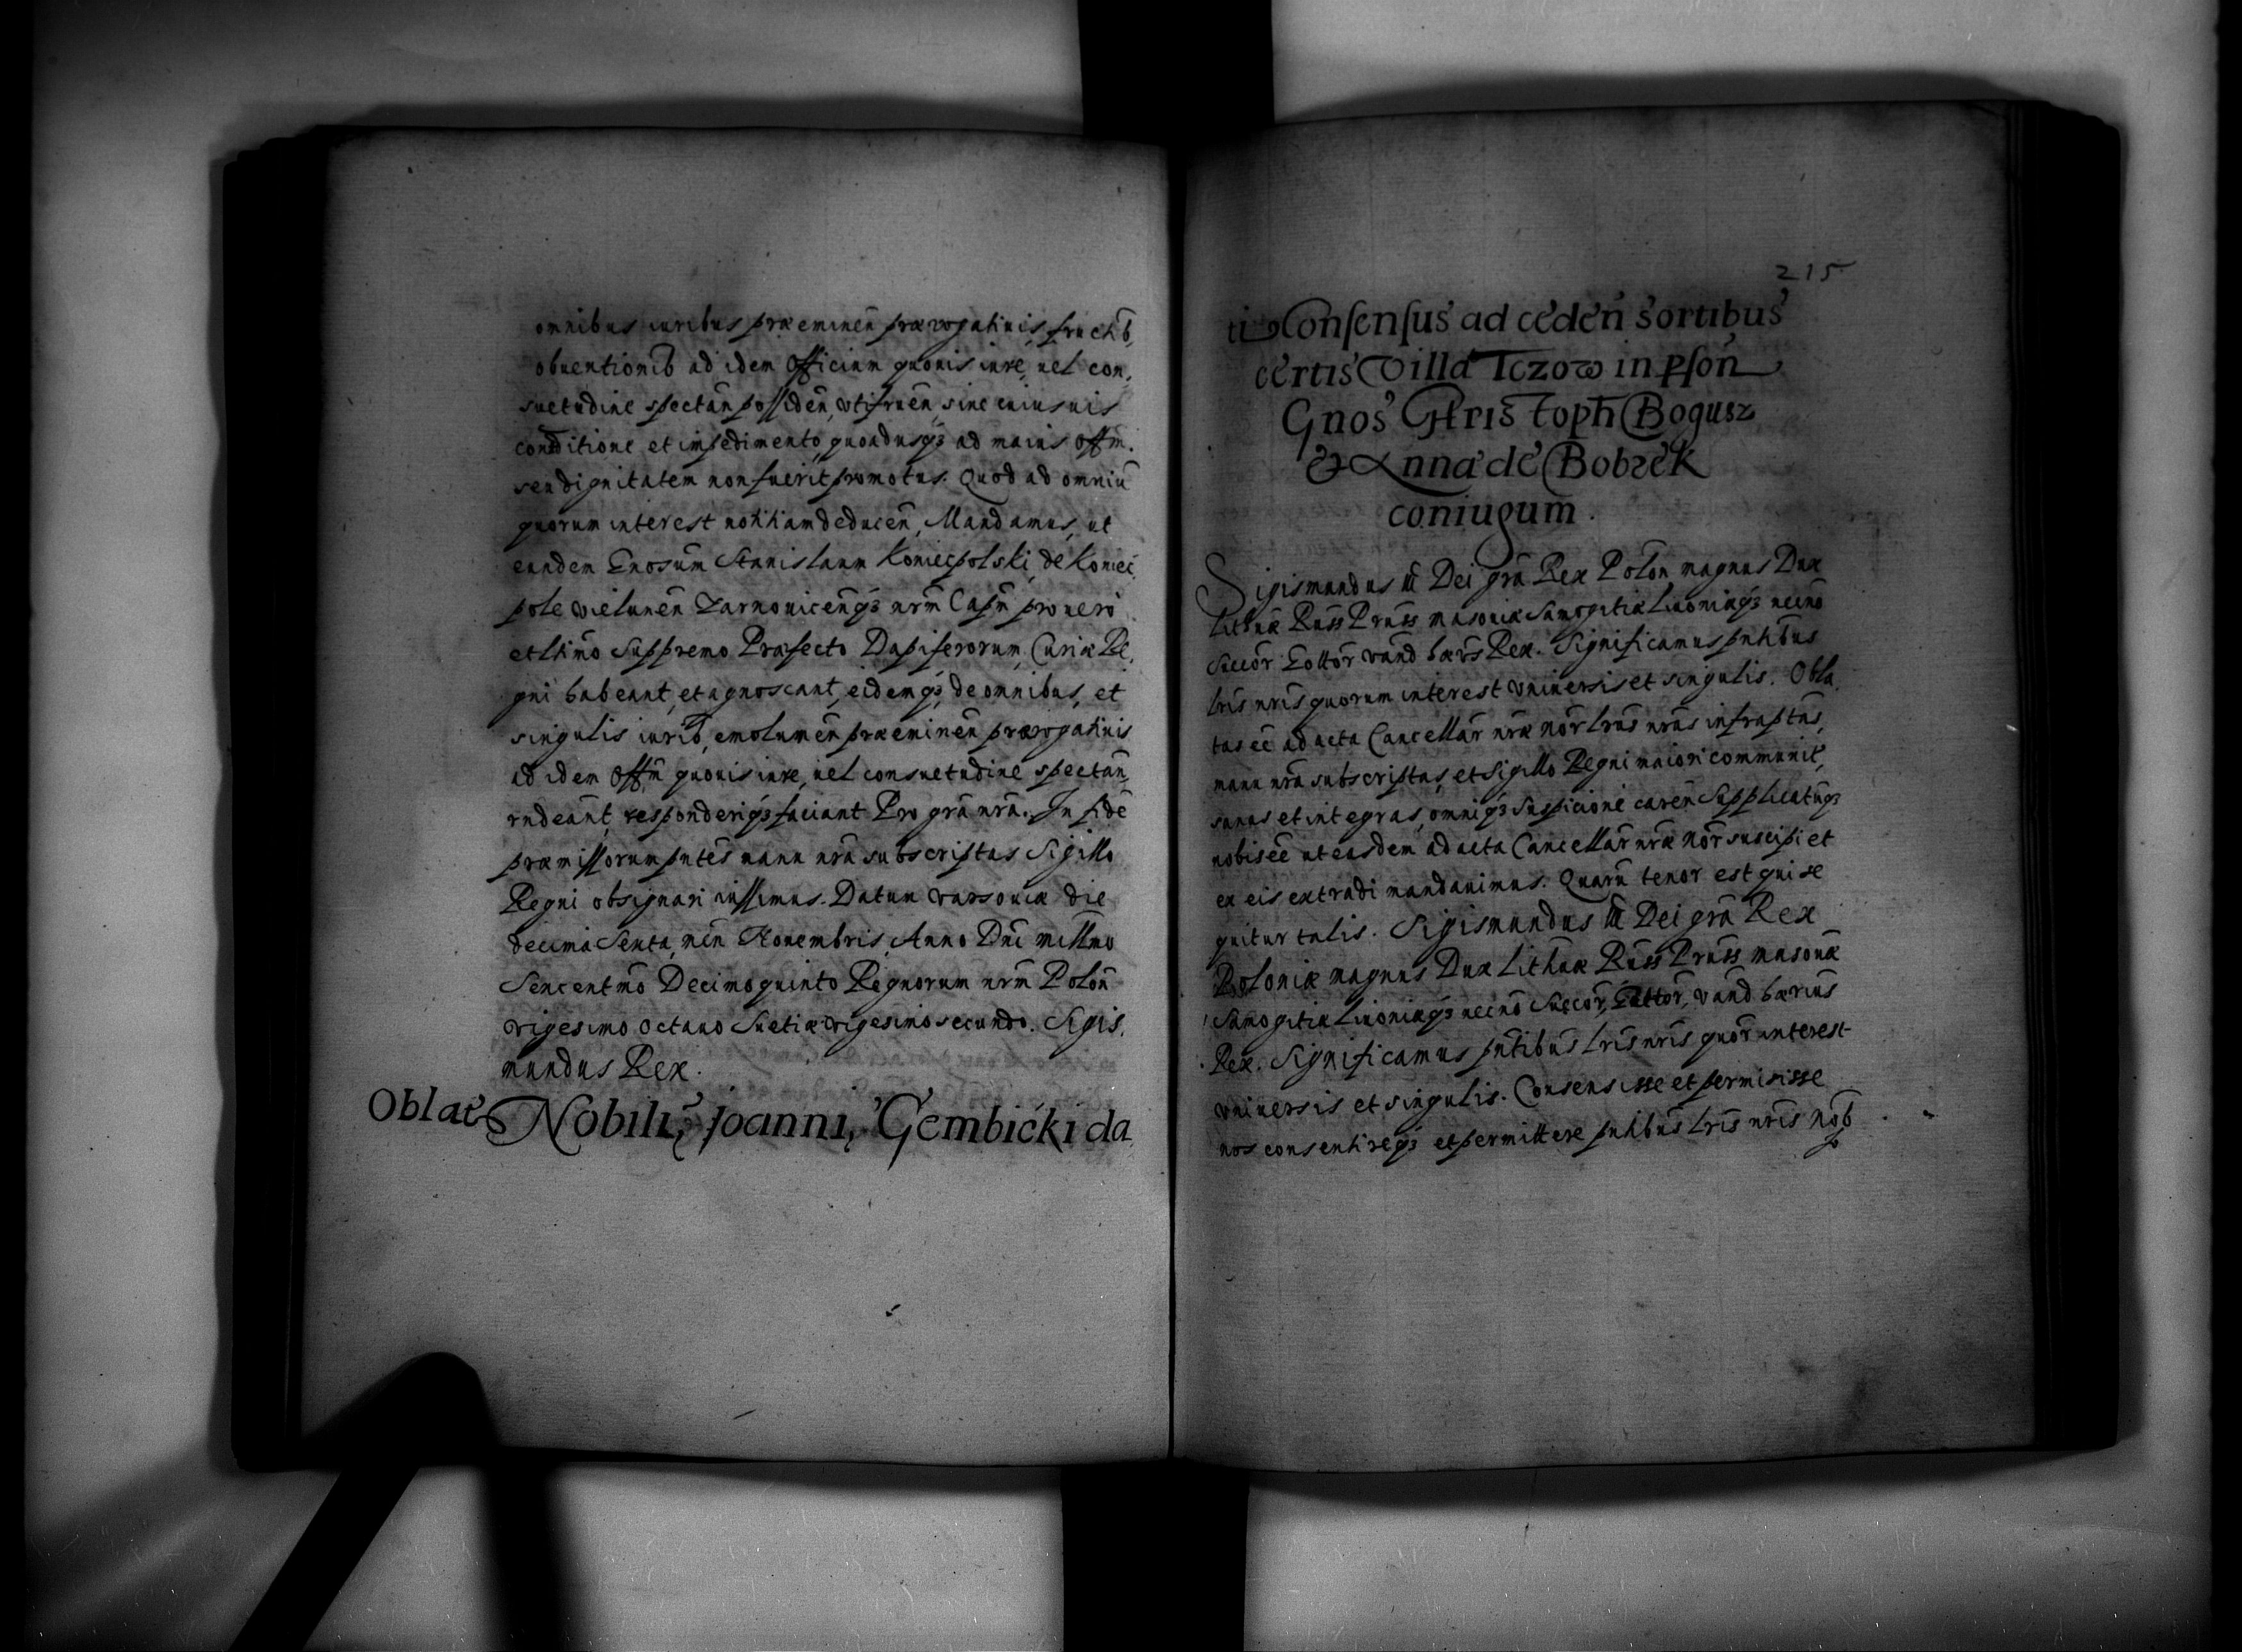 omnibus iuribus præeminen̄ prærogatiuis, fructib̄,
obuentionib̄ ad idem Officium quouis iure, uel con,
suetudine spectan̄ possiden̄, vtifruen̄ sine cuiusuis
conditione et impedimento, quoadusq₃ ad maius offm̄.
seu dignitatem non fuerit promotus. Quod ad omniū
quorum interest notitiam deducen̄, Mandamus, ut
eundem Gnosum̄ Stanislaum Koniecpolski, de Koniec,
pole Vielunen̄ Zarnouicen̄q₃ nrm̄ Capn̄ pro uero
et ltimo̅ Suppremo Præfecto Dapiferorum, Curiæ Re,
gni habeant, et agnoscant, eidemq₃, de omnibus, et
singulis iurib̄, emolumen̄ præeminen̄ prærogatiuis
ad idem Offm̄ quouis iure, uel consuetudine spectan̄,
rndeant̄, responderiq₃ faciant Pro grā nrā. In fidē
præmissorum pntēs manu nrā subscriptas Sigillo
Regni obsignari iussimus. Datum Varsouiæ die
decima Sexta, mēn Nouembris, Anno Dnī millmo
Sexcentmō Decimoquinto Regnorum nrm̄ Polon̄
vigesimo octauo Suetiæ vigesimo secundo. Sigis,
mundus Rex.
Oblat̄ Nobili, Joanni, Gembicki da,
215
ti Consensus ad ceden̄ sortibus
certis Villa Tczow in pson̄
Gnos Chris toph̄ Bogusz
& Anna de Bobrek
coniugum.
Sigismundus III Dei grā Rex Polon̄ magnus Dux
Lithuæ Russ Pruss masouiæ Samogitiæ Liuoniæq₃ necnō
Succōr Gottōr Vand̄ hærs̄ Rex. Significamus pntibus
lris̄ nris̄ quorum interest vniuersis et singulis. Obla,
tas eē ad acta Cancellar̄ nræ nōr lrās nrās infraptas,
manu nrā subscriptas, et Sigillo Regni maiori communit̄,
sanas et integras, omniq₃ suspicione caren̄ Supplicatūq₃
nobis eē ut easdem ad acta Cancellar̄ nræ nōr suscipi et
ex eis extradi mandauimus. Quarū tenor est qui se
quitur talis. Sigismundus III Dei grā Rex
Poloniæ magnus Dux Lithuæ Russ Pruss masouæ
Samogitiæ Liuoniæq₃ necnō Succōr, Gottōr, Vand̄ hærius
Rex. Significamus pntibus̄ lris̄ nris̄ quōr interest
vniuersis et singulis. Consensisse et permisisse
nos consentireq₃ et permittere pntibus̄ lris̄ nris̄ Nob